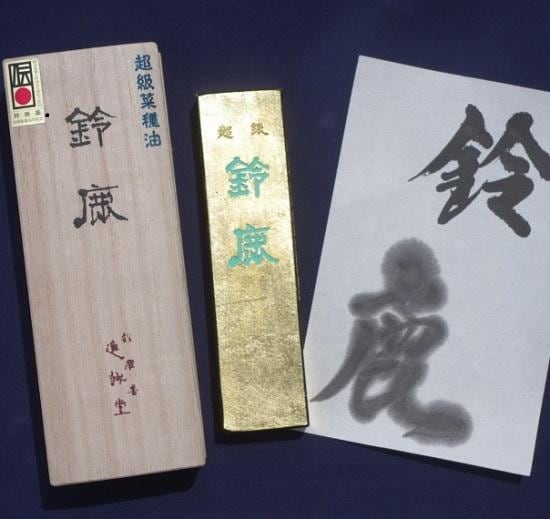 伝
超級菜種油
鈴鹿
鈴鹿墨
進誠堂
超級
鈴鹿
鈴鹿